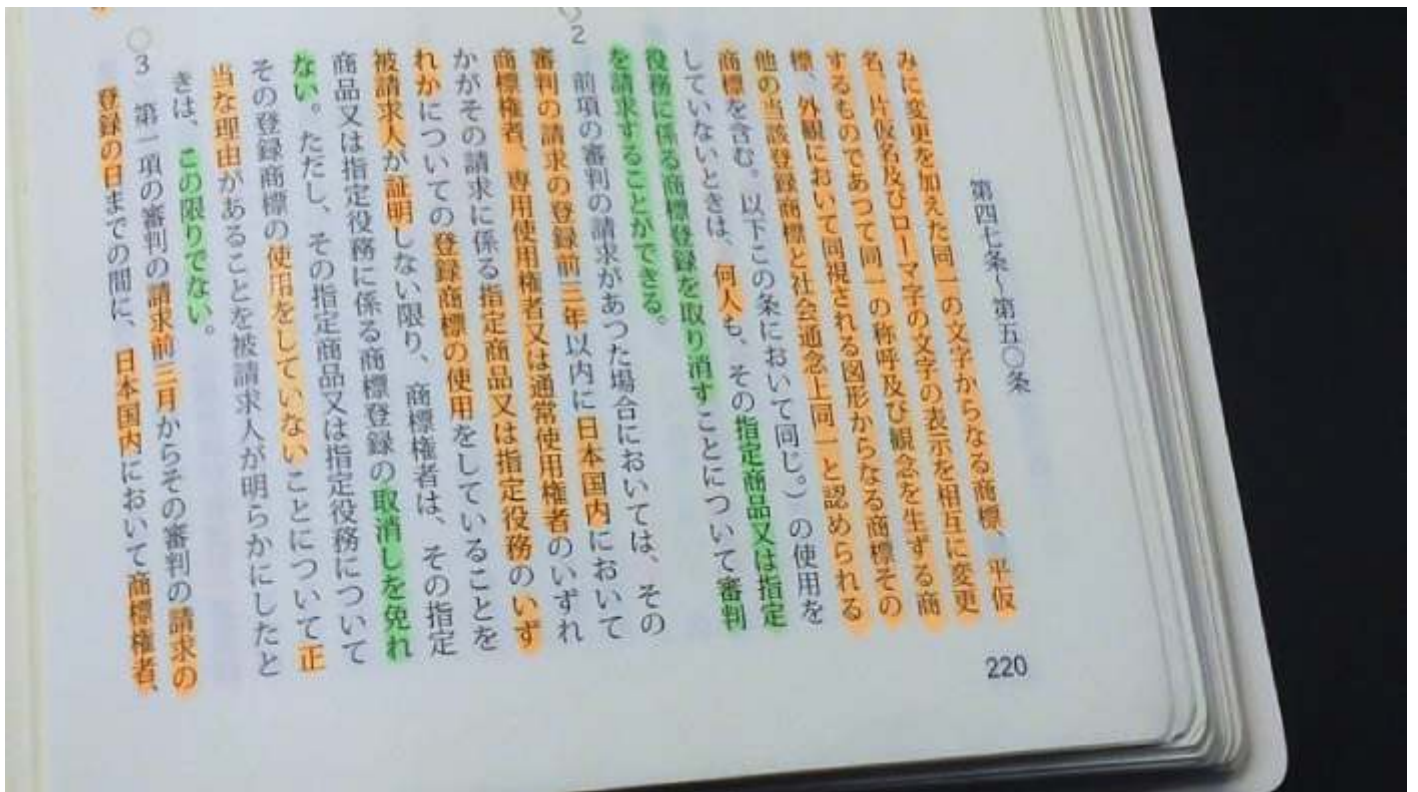 第四七条~第五〇条
みに変更を加えた同一の文字からなる商標、平仮
名、片仮名及びローマ字の文字の表示を相互に変更
するものであつて同一の称呼及び観念を生ずる商
標、外観において同視される図形からなる商標その
他の当該登録商標と社会通念上同一と認められる
商標を含む。以下この条において同じ。)の使用を
していないときは、何人も、その指定商品又は指定
役務に係る商標登録を取り消すことについて審判
を請求することができる。
2 前項の審判の請求があつた場合においては、その
審判の請求の登録前三年以内に日本国内において
商標権者、専用使用権者又は通常使用権者のいずれ
かがその請求に係る指定商品又は指定役務のいず
れかについての登録商標の使用をしていることを
被請求人が証明しない限り、商標権者は、その指定
商品又は指定役務に係る商標登録の取消しを免れ
ない。ただし、その指定商品又は指定役務について
その登録商標の使用をしていないことについて正
当な理由があることを被請求人が明らかにしたと
きは、この限りでない。
3 第一項の審判の請求前三月からその審判の請求の
登録の日までの間に、日本国内において商標権者、
220